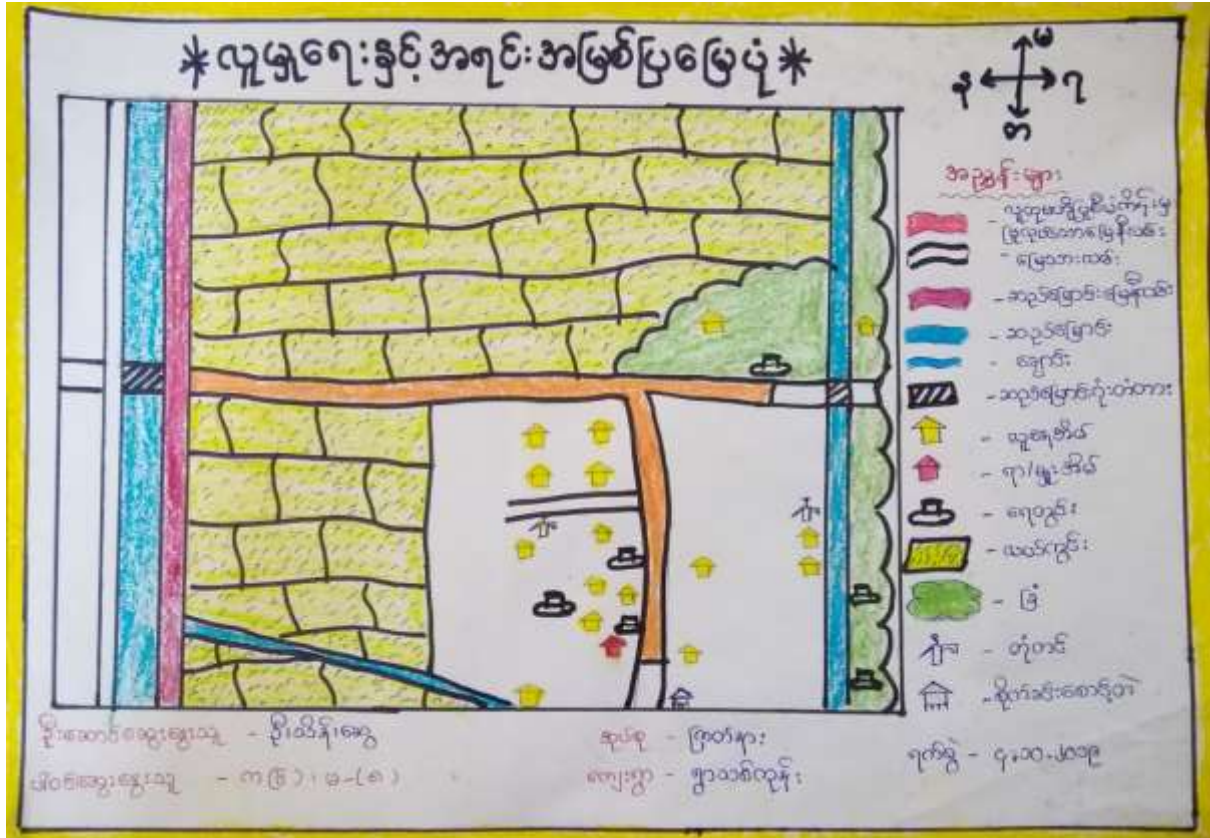 *လူမှုရေးနှင့်အရင်းအမြစ်ပြမြေပုံ*
မ
န
ရ
တ
အညွှန်းများ
- လူထုဗဟိုပြုစီမံကိန်းမှ
ပြုလုပ်သောမြေနီလမ်း
- မြေသားလမ်း
- ဆည်မြောင်းမြေနီလမ်း
- ဆည်မြောင်း
- ချောင်း
- ဆည်မြောင်းကူးတံတား
- လူနေအိမ်
- ရာ/မှူးအိမ်
- ရေတွင်း
- လယ်ကွင်း
- ခြံ
- တုံကင်
ဦးဆောင်ဆွေးနွေးသူ - ဦးသိန်းဆွေ
ပါဝင်ဆွေးနွေးသူ - က(၆)၊ မ-(၈)
အုပ်စု - ကြာတ်နား
ကျေးရွာ - ရွာသစ်ကုန်း
ရက်စွဲ - ၄.၁၀.၂၀၁၉